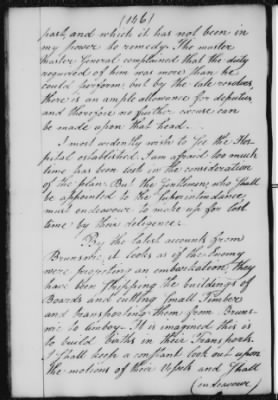 (146)
past, and which it has not been in
my power to remedy. The muster
master General complained that the duty
required of him was more than he
could perform; but by the late resolves,
there is an ample allowance for deputies,
and therefore no further excuse can
be made upon that head.
I most ardently wish to see the Hos-
pital established. I am afraid too much
time has been lost in the consideration
of the plan. But the Gentlemen, who shall
be appointed to the Superintendance,
must endeavour to make up for lost
time by their deligence.
By the latest accounts from
Brunswic, it looks as if the Enemy
were projecting an embarkation, they
have been stripping the buildings of
Boards and cutting small Timber
and transporting them from Bruns-
wic to Amboy. It is imagined this is
to build births in their Transports.
I shall keep a constant look out upon
the motions of their Vessels and shall
(endeavour)